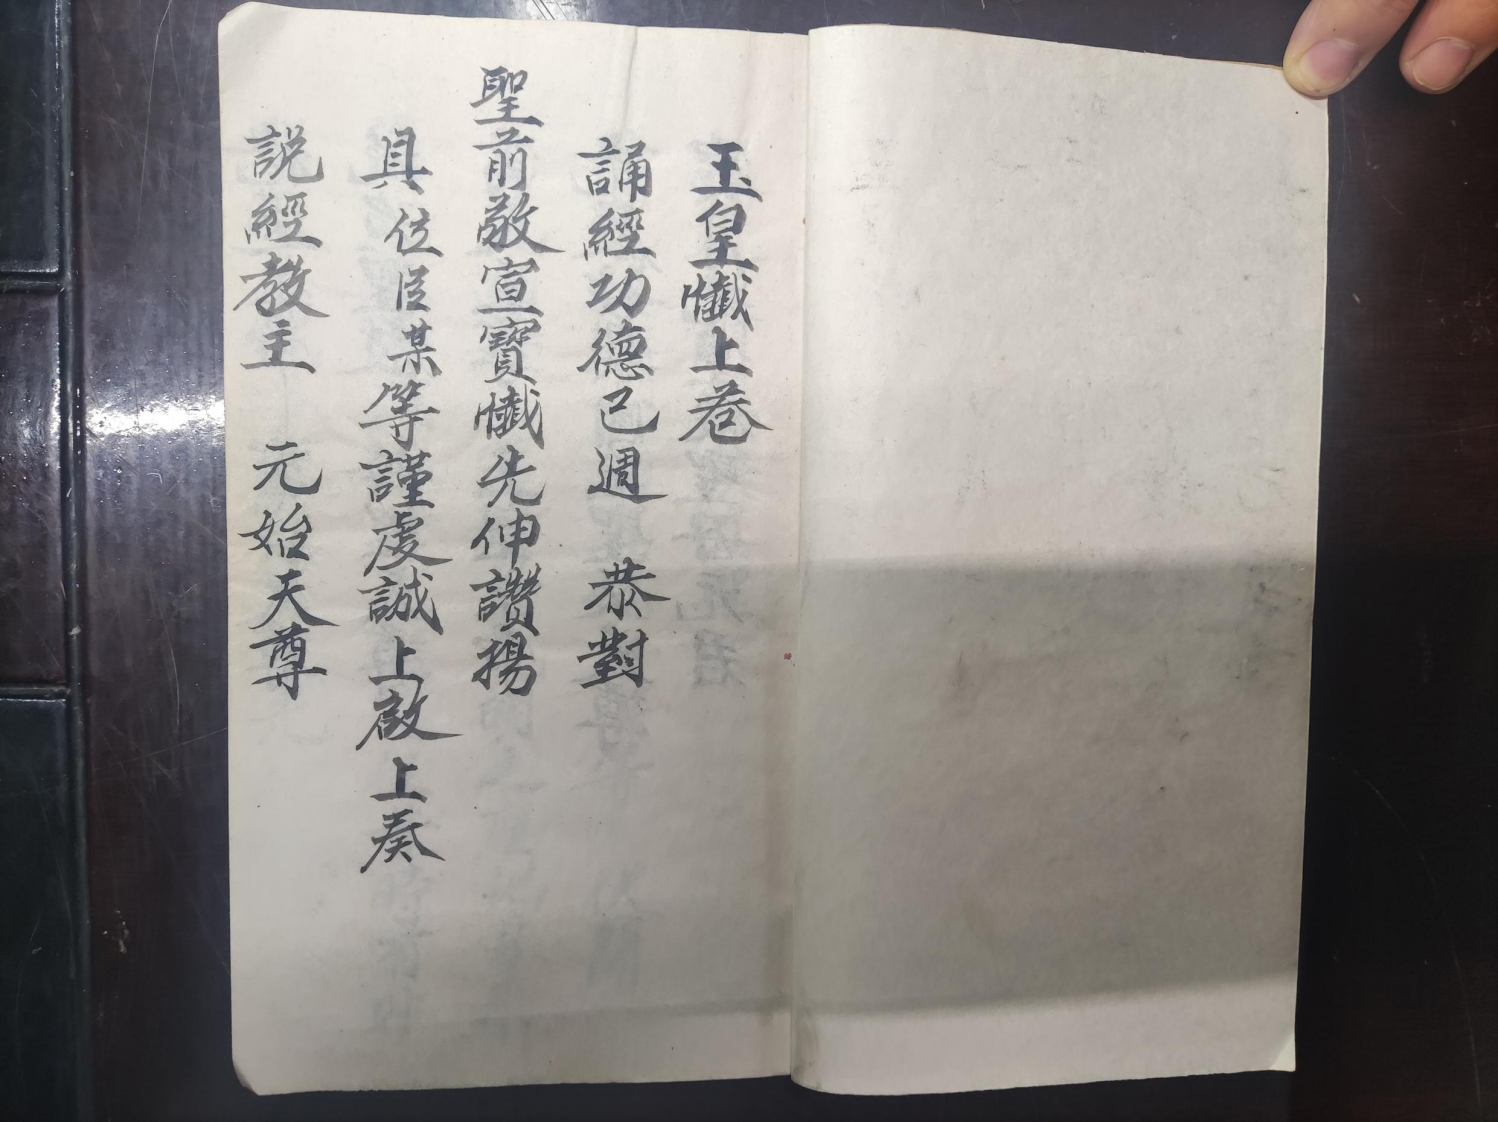 玉皇懺上卷
誦經功德已週　恭對
聖前敬宣寶懺先伸讚揚
具位臣某等謹虔誠上啟上奏
說經教主　元始天尊